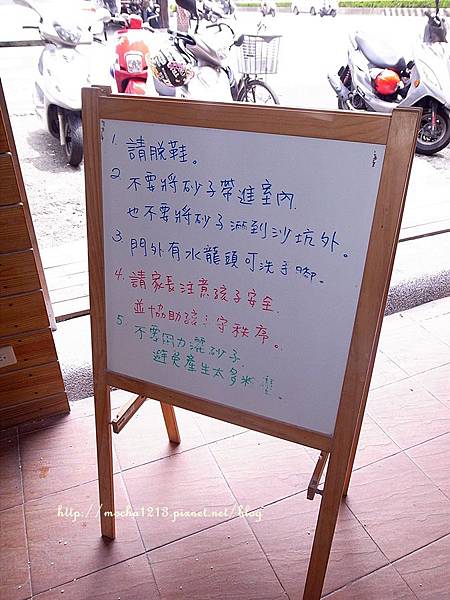 1. 請脫鞋。
2. 不要將砂子帶進室內.
也不要將砂子灑到沙坑外。
3. 門外有水龍頭可洗手腳。
4. 請家長注意孩子安全.
並協助孩子守秩序。
5. 不要用力灑砂子.
避免產生太多粉塵。
http://mocha1213.pixnet.net/blog